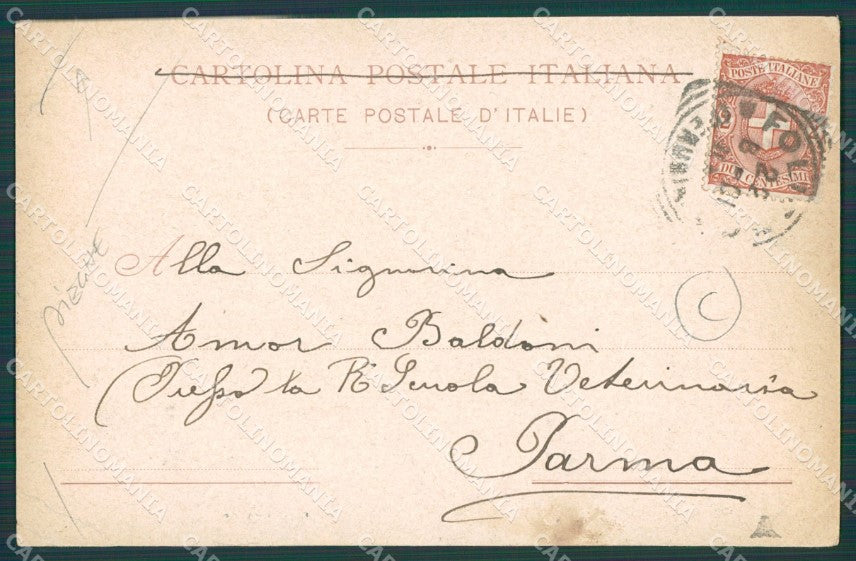 CARTOLINA POSTALE ITALIANA
(CARTE POSTALE D'ITALIE)
POSTE ITALIANE
DUE CENTESIMI
FOLI
Alla Signorina
Amor Baldoni
(Presso la R Scuola Veterinaria
Parma
C
CARTOLINOMANIA